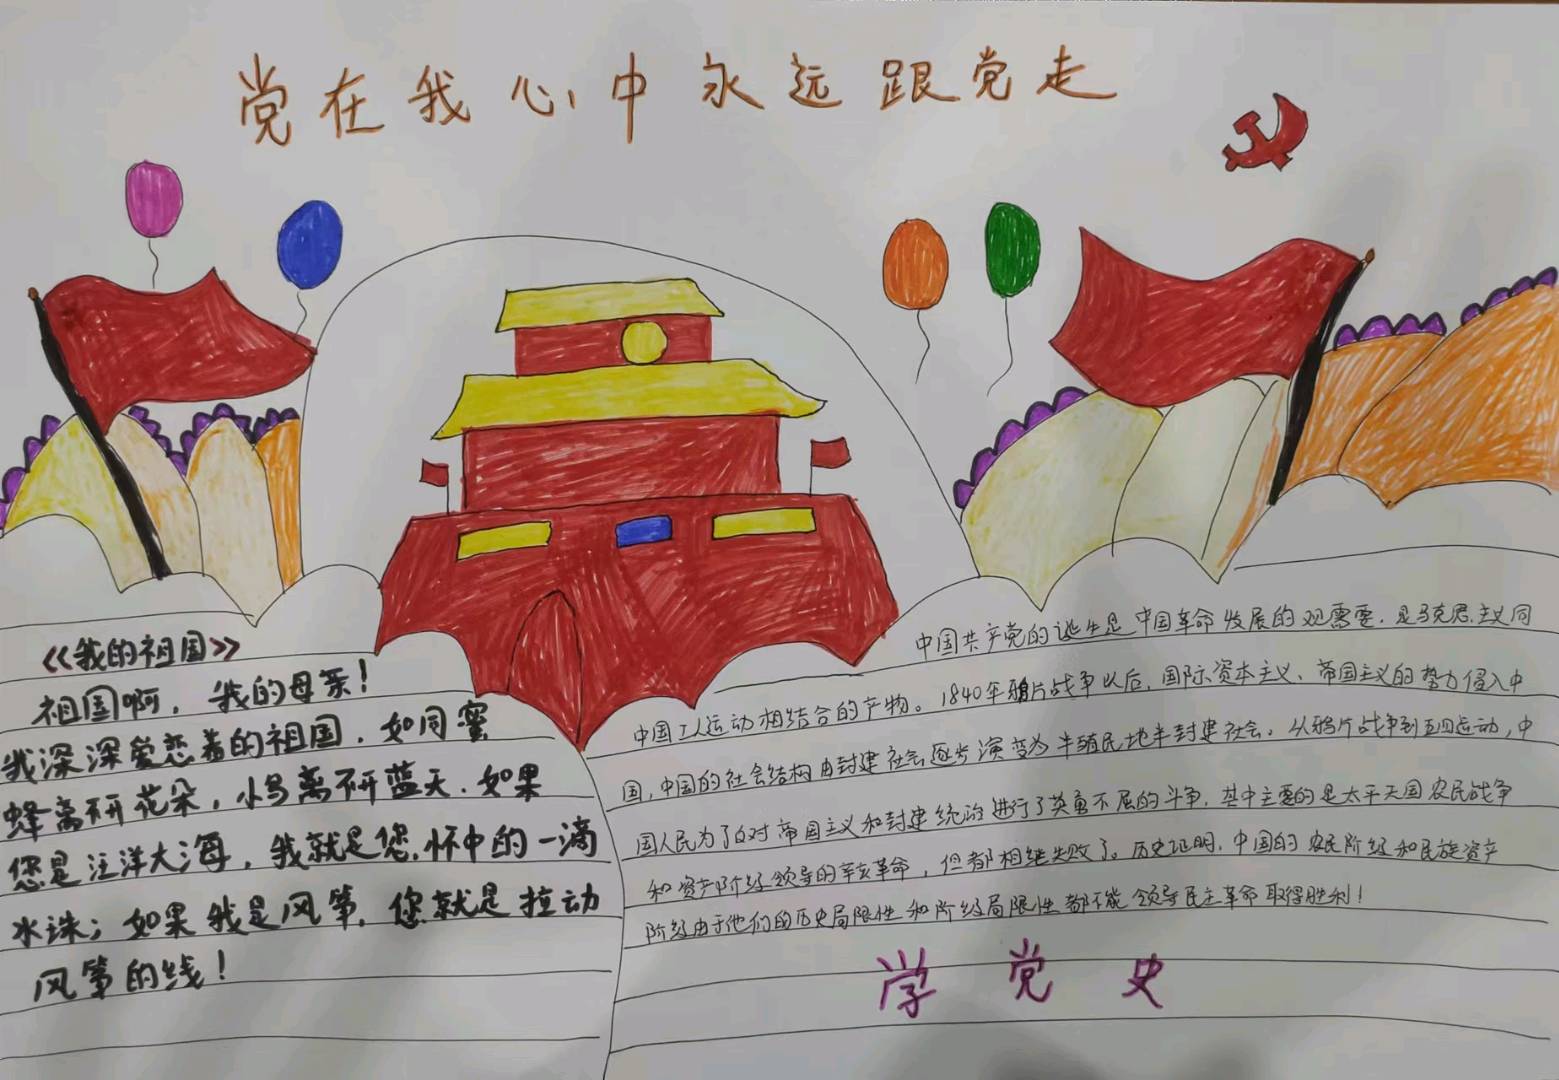 党在我心中永远跟党走
《我的祖国》
祖国啊，我的母亲！
我深深爱恋着的祖国．如同蜜
蜂离不开花朵，小鸟离不开蓝天．如果
您是汪洋大海，我就是您怀中的一滴
水珠；如果我是风筝，您就是拉动
风筝的线！
中国共产党的诞生是中国革命发展的观需要．是马克思主义同
中国工人运动相结合的产物。1840年鸦片战争以后，国际资本主义、帝国主义的势力侵入中
国，中国的社会结构由封建社会逐步演变为半殖民地半封建社会。从鸦片战争到五四运动，中
国人民为了反对帝国主义和封建统治进行了英勇不屈的斗争，其中主要的是太平天国农民战争
和资产阶级领导的辛亥革命，但都相继失败了。历史证明，中国的农民阶级和民族资产
阶级由于他们的历史局限性和阶级局限性都不能领导民主革命取得胜利！
学党史